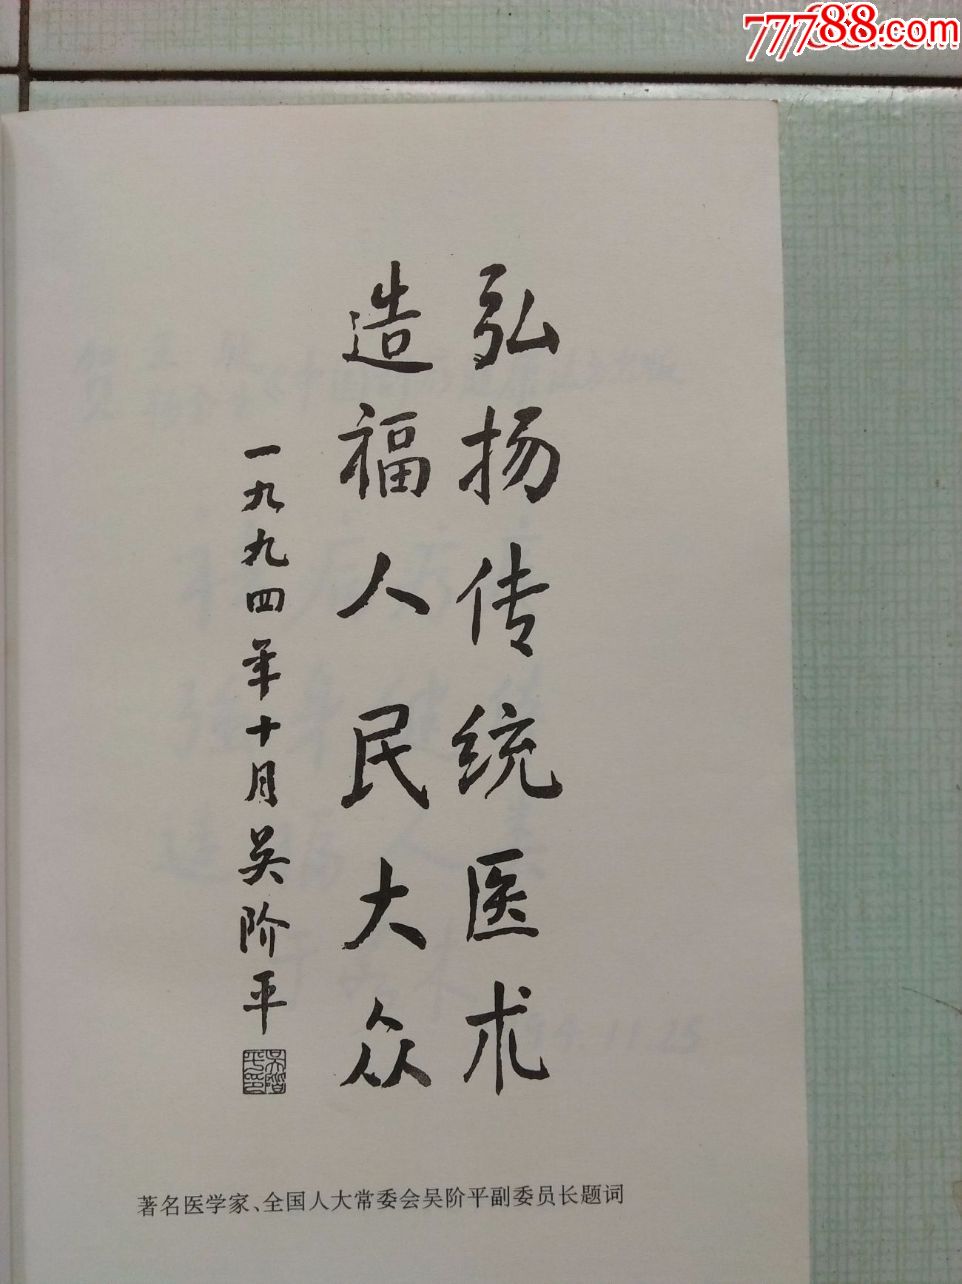 77788.com
弘扬传统医术
造福人民大众
一九九四年十月吴阶平
著名医学家、全国人大常委会吴阶平副委员长题词